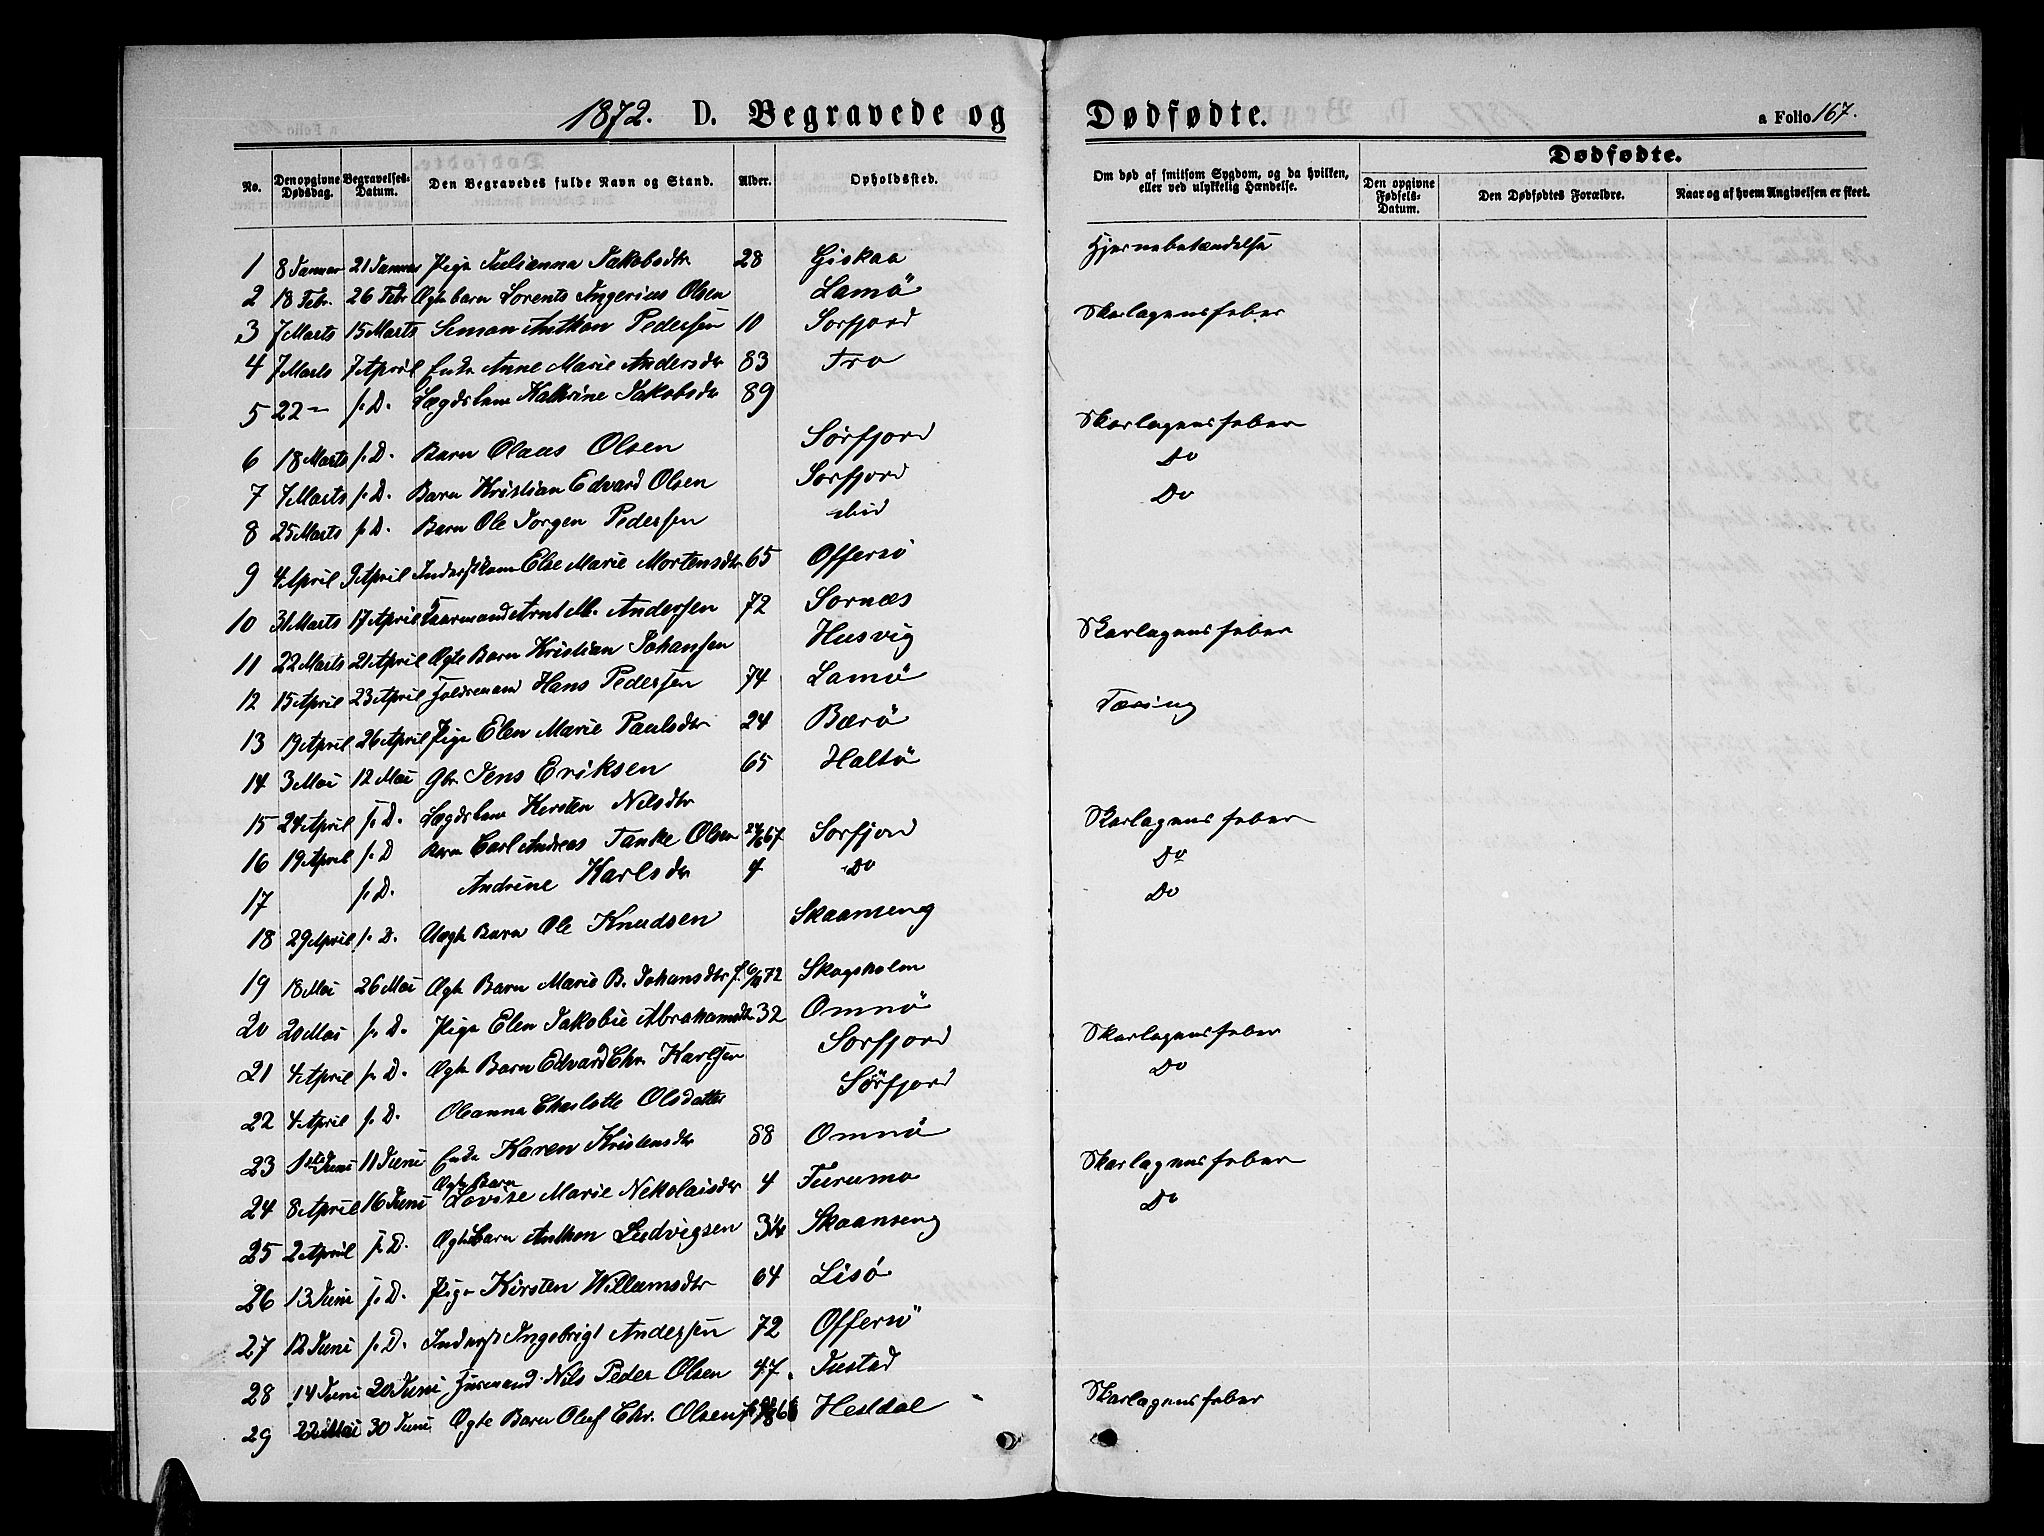 1872. D. Begravede og Dødfødte. a Folio 167.
Dødfødte.
No. Den opgivne Dødsdag. Begravelses-Datum. Den Begravedes fulde Navn og Stand. Alder. Opholdssted. Om død af smitsom Sygdom, og da hvilken, eller ved ulykkelig Hændelse. Den opgivne Fødsels-Datum. Den Dødfødtes Forældre. Naar og af hvem Angivelsen er skeet.
1 8 Januar 21 Januar Pige Julianna Jakobsdtr 28 Giskaa Hjernebetændelse
2 18 Febr. 26 Febr Ægte barn Lorents Ingerius Olsen Lamö
3 7 Marts 15 Marts Simon Anthon Pedersen 10 Sorfjord Skarlagensfeber
4 7 Marts 7 April Enke Anne Marie Andersdtr 83 Tro
5 22 — s. D. Lægdslem Kathrine Jakobsdtr 89
6 18 Marts s. D. Barn Olaus Olsen Sörfjord Skarlagensfeber
7 7 Marts s. D. Barn Kristian Edvard Olsen Sorfjord Do
8 25 Marts s. D. Barn Ole Jorgen Pedersen ibid Do
9 4 April 9 April Inderstkone Else Marie Mortensdtr 65 Offersö
10 31 Marts 17 April Kaarmand Arnt M. Andersen 72 Sornæs
11 22 Marts 21 April Ægte Barn Kristian Johansen Husvig Skarlagensfeber
12 15 April 23 April Foldremand Hans Pedersen 74 Lamö
13 19 April 26 April Pige Elen Marie Paulsdtr 24 Bærö Tæring
14 3 Mai 12 Mai Gbr. Jens Eriksen 65 Haltö
15 24 April s. D. Lægdslem Kersten Nilsdtr
16 19 April s. D Barn Carl Andreas Tanke Olsen 24/6 67 Sorfjord Skarlagensfeber
17 s. D. Andrine Karlsdtr 4 Do Do
18 29 April s. D. Uægte Barn Ole Knudsen Skaanseng Do
19 18 Mai 26 Mai Ægte Barn Marie B. Johansdtr f. 6/4 72 Skogsholm
20 20 Mai s. D. Pige Elen Jakobie Abrahamsdtr 32 Omnö
21 4 April s. D. Ægte Barn Edvard Chr. Karlsen Sorfjord Skarlagensfeber
22 4 April s. D. Oleanna Charlotte Olsdatter Sörfjord Do
23 1ste Juni 11 Juni Enke Karen Kristensdtr 88 Omnö
24 8 April 16 Juni Ægte Barn Lovise Marie Nekolaisdtr 4 Furumo Skarlagensfeber
25 2 April s. D. Ægte barn Anthon Ludvigsen 3 1/4 Skaanseng Do
26 13 Juni s. D. Pige Kirsten Willumsdtr 64 Lisö
27 12 Juni s. D. Inderst Ingebrigt Andersen 72 Offersö
28 14 Juni 20 Juni Husmand Nils Peder Olsen 47. Tustad
29 22 Mai 30 Juni Ægte Barn Oluf Chr. Olsen Hestdal Skarlagensfeber